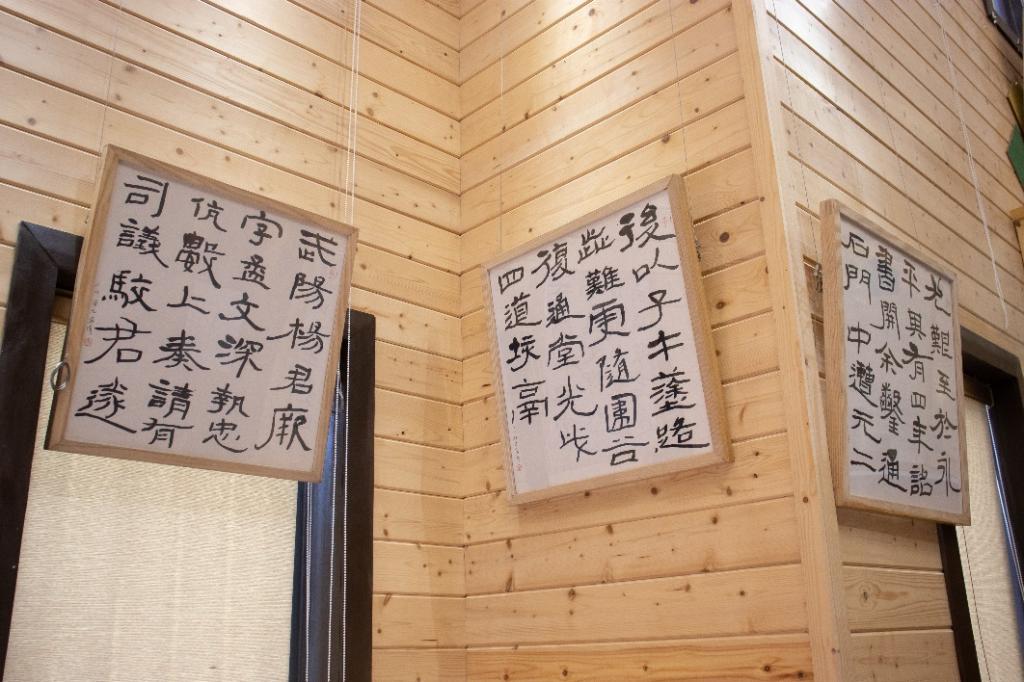 武陽楊君厥
字孟文深執忠
伉數上奏請有
司議駮君遂
後以子午塗路
歰難更隨圍谷
復通堂光此
四道垓鬲
尤難至於永
平其有四年詔
書開余鑿通
石門中遭元二